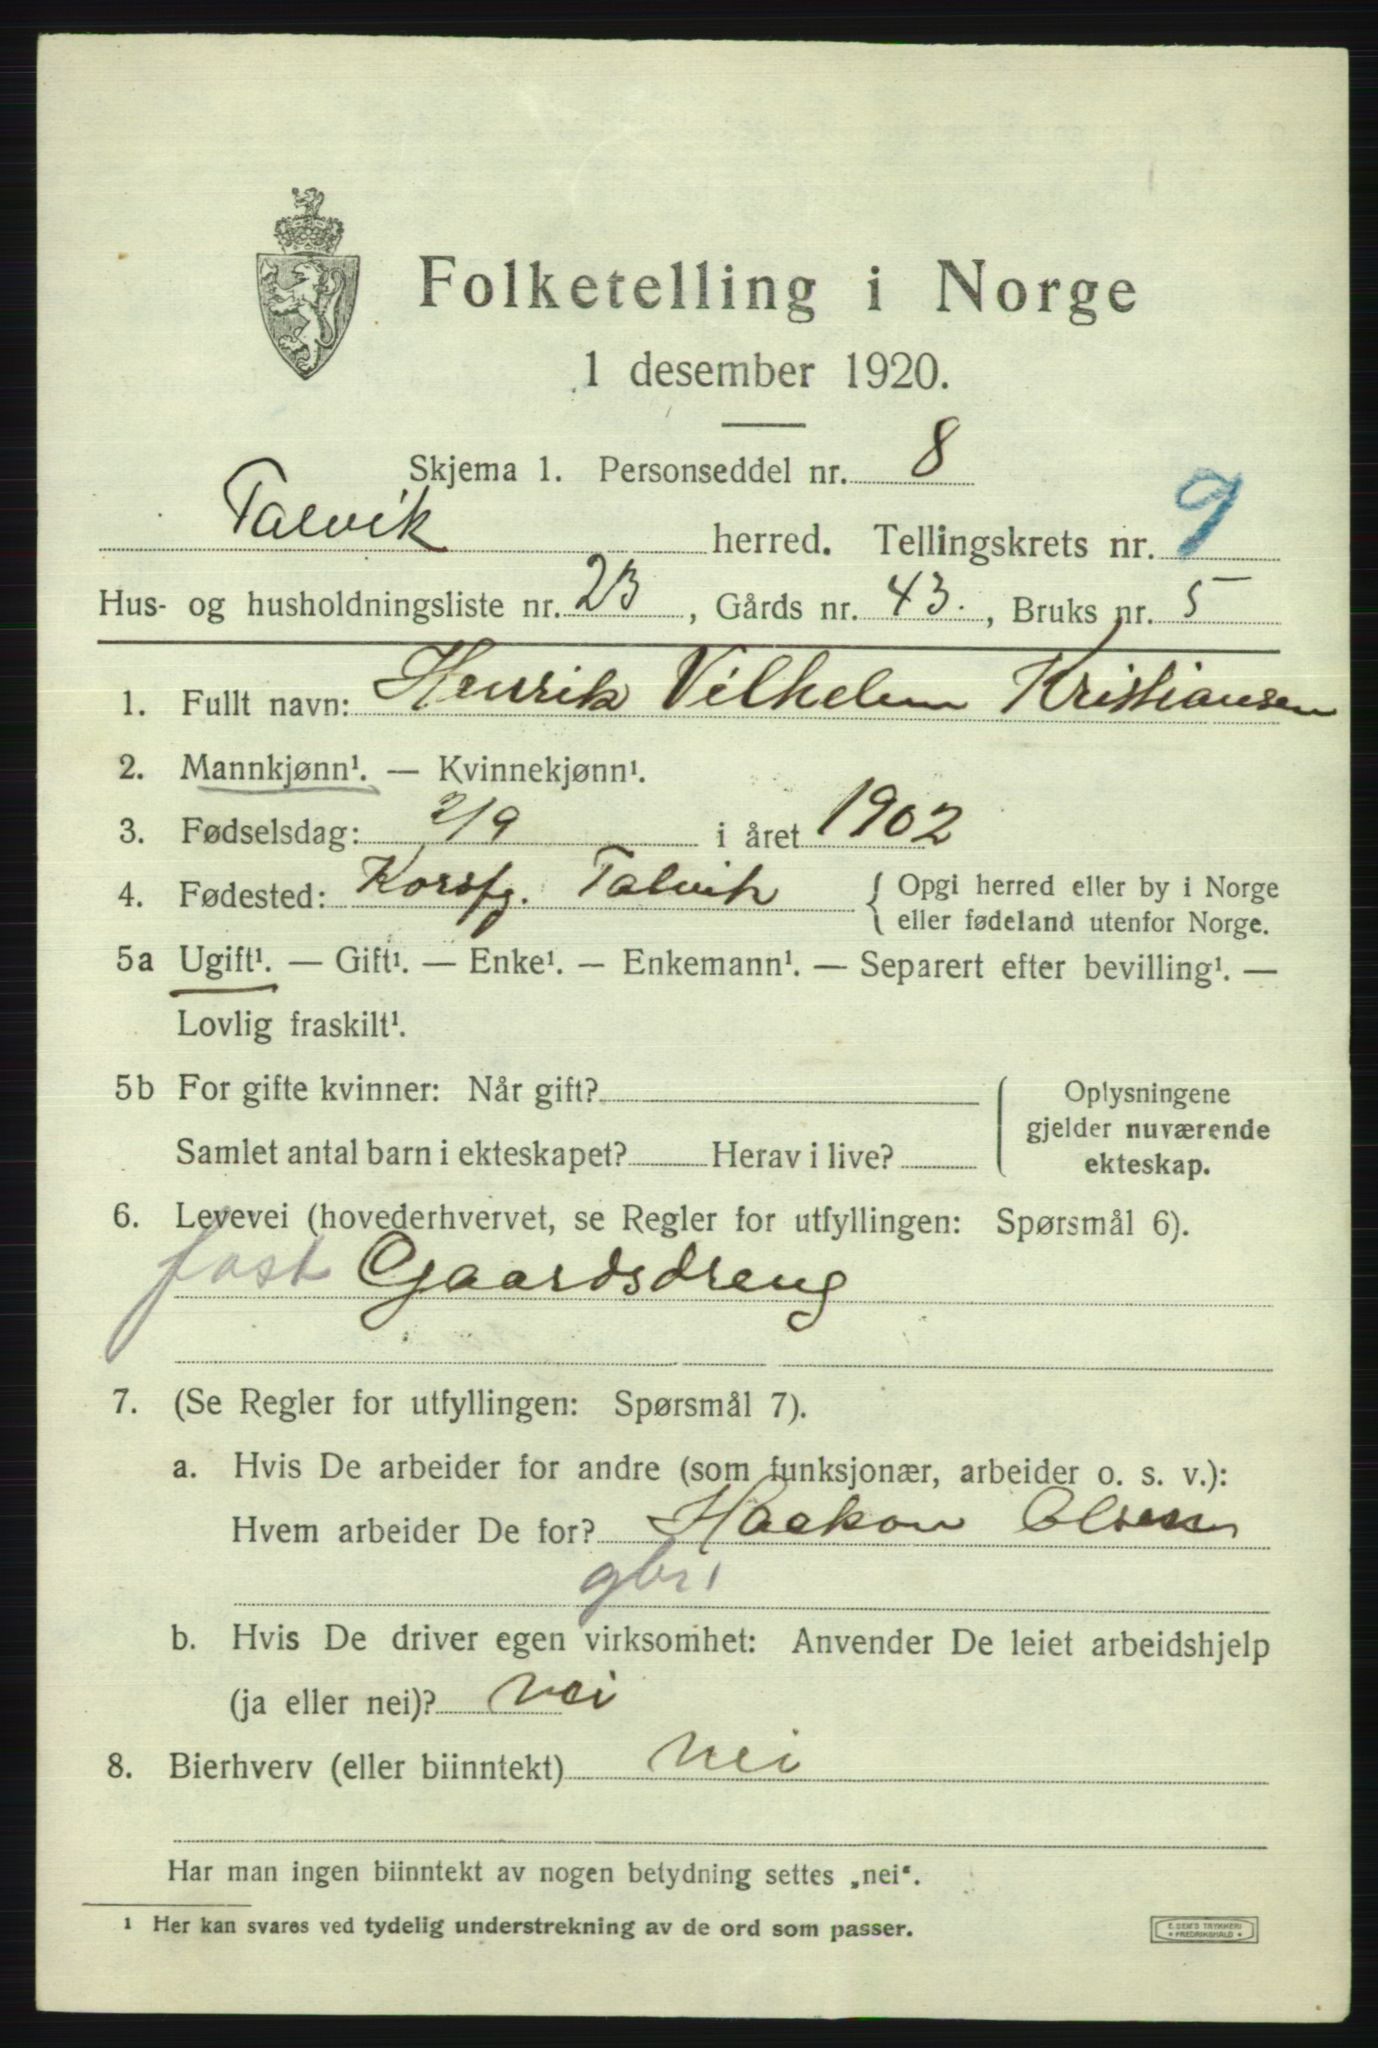 Folketelling i Norge
1 desember 1920.
Skjema 1. Personseddel nr. 8
Talvik herred. Tellingskrets nr. 9
Hus- og husholdningsliste nr. 23, Gårds nr. 43., Bruks nr. 5
1. Fullt navn: Henrik Vilhelm Kristiansen
2. Mannkjønn¹. — Kvinnekjønn¹.
3. Fødselsdag: 2/9 i året 1902
4. Fødested: Korsfj. Talvik { Opgi herred eller by i Norge
eller fødeland utenfor Norge.
5a Ugift¹. — Gift¹. — Enke¹. — Enkemann¹. — Separert efter bevilling¹. —
Lovlig fraskilt¹.
5b For gifte kvinner: Når gift?
Samlet antal barn i ekteskapet? Herav i live?
Oplysningene
gjelder nuværende
ekteskap.
6. Levevei (hovederhvervet, se Regler for utfyllingen: Spørsmål 6).
fast Gaardsdreng
7. (Se Regler for utfyllingen: Spørsmål 7).
a. Hvis De arbeider for andre (som funksjonær, arbeider o. s. v.):
Hvem arbeider De for? Haakon Olsen
gbr
b. Hvis De driver egen virksomhet: Anvender De leiet arbeidshjelp
(ja eller nei)? nei
8. Bierhverv (eller biinntekt) nei
Har man ingen biinntekt av nogen betydning settes „nei“.
¹ Her kan svares ved tydelig understrekning av de ord som passer.
E. SEM'S TRYKKERI
* FREDRIKSHALD *